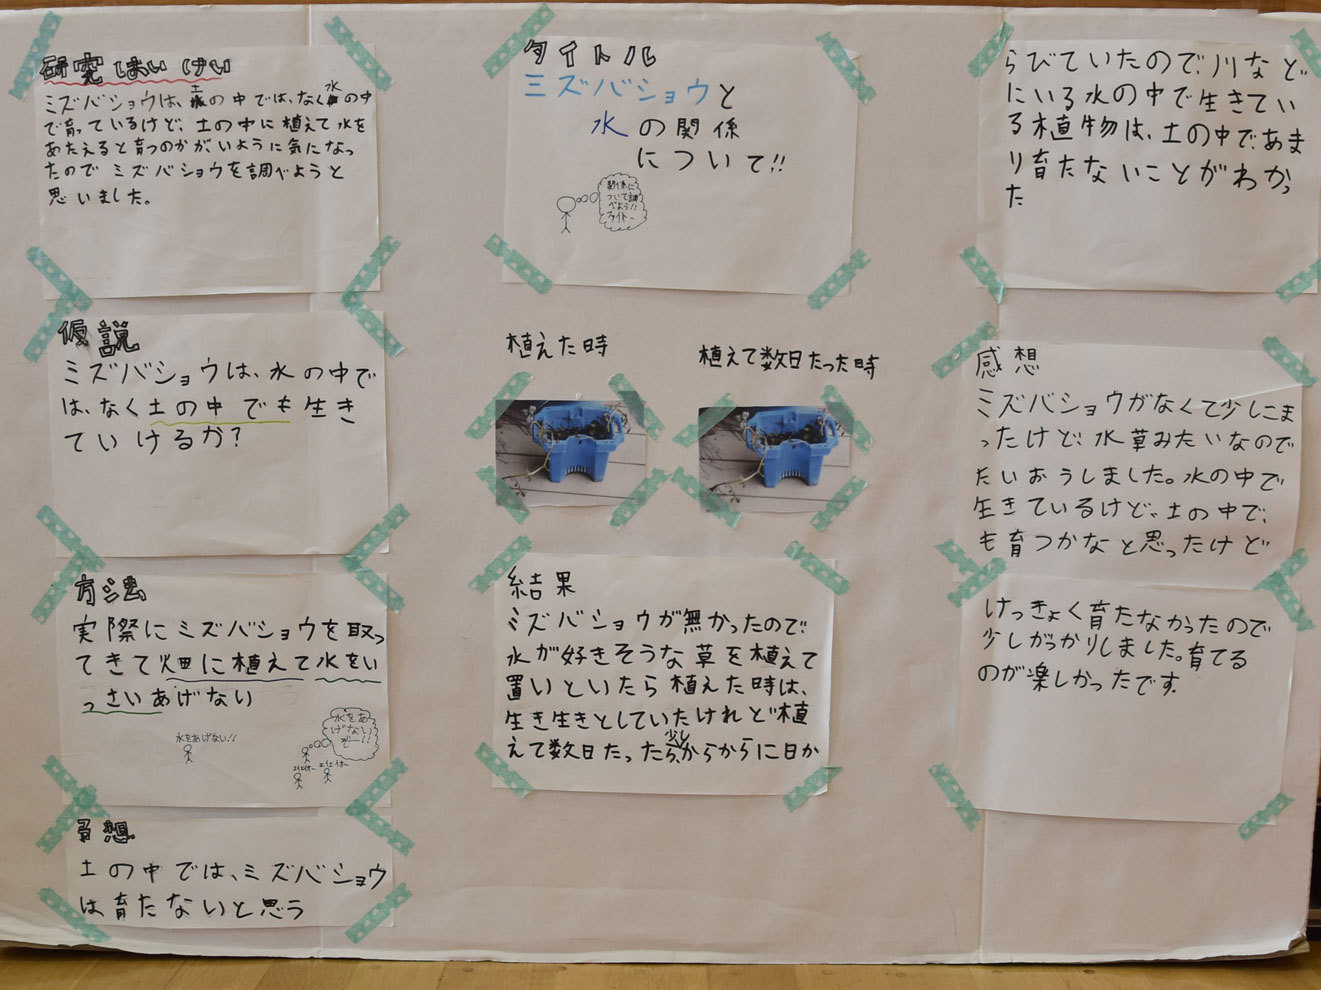 研究はいけい
ミズバショウは、土の中では、なく水の中
で育っているけど、土の中に植えて水を
あたえると育つのかがいように気になっ
たのでミズバショウを調べようと
思いました。
仮説
ミズバショウは、水の中で
は、なく土の中でも生き
ていけるか?
方法
実際にミズバショウを取っ
てきて畑に植えて水をい
っさいあげない
水をあげない!!
水をあ
げない
でー!!
エイエイオー
エイエイオー
予想
土の中では、ミズバショウ
は育たないと思う
タイトル
ミズバショウと
水の関係
について!!
関係に
ついて調
べよう!!
ファイトー
植えた時
植えて数日たった時
結果
ミズバショウが無かったので
水が好きそうな草を植えて
置いといたら植えた時は、
生き生きとしていたけれど植
えて数日たったら、少しからからに日か
らびていたので川など
にいる水の中で生きてい
る植物は、土の中であま
り育たないことがわかっ
た
感想
ミズバショウがなくて少しこま
ったけど水草みたいなので
たいおうしました。水の中で
生きているけど、土の中で、
も育つかなと思ったけど
けっきょく育たなかったので
少しがっかりしました。育てる
のが楽しかったです。